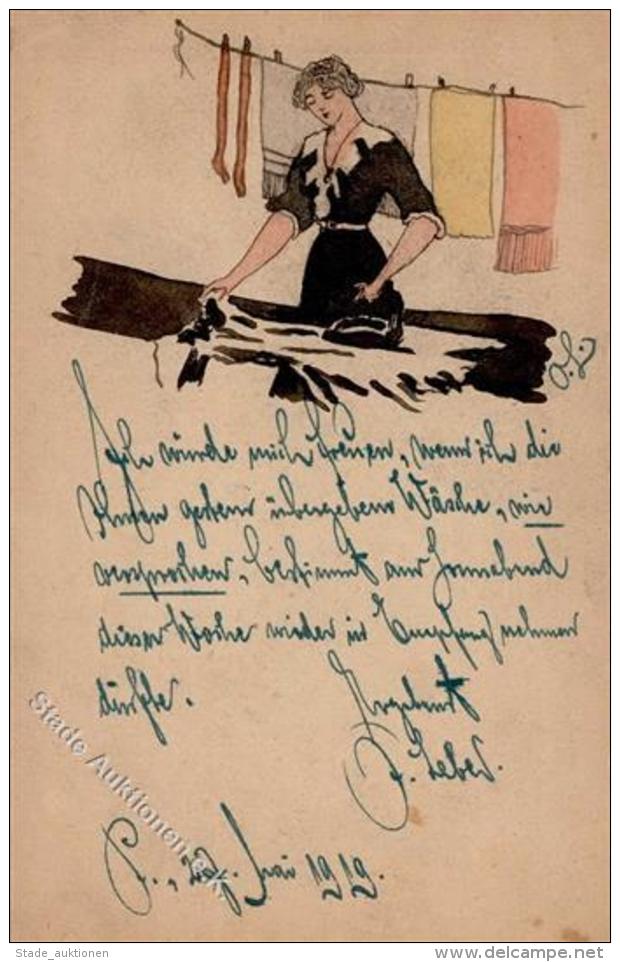 O. L.
Ich würde mich freuen, wenn ich die
Ihnen gestern übergebene Wäsche, wie
versprochen, bestimmt am Sonnabend
dieser Woche wieder in Empfang nehmen
dürfte.
Ergebenst
Mai 1919.
Stade Auktionen
Stade_auktionen
www.delcampe.net